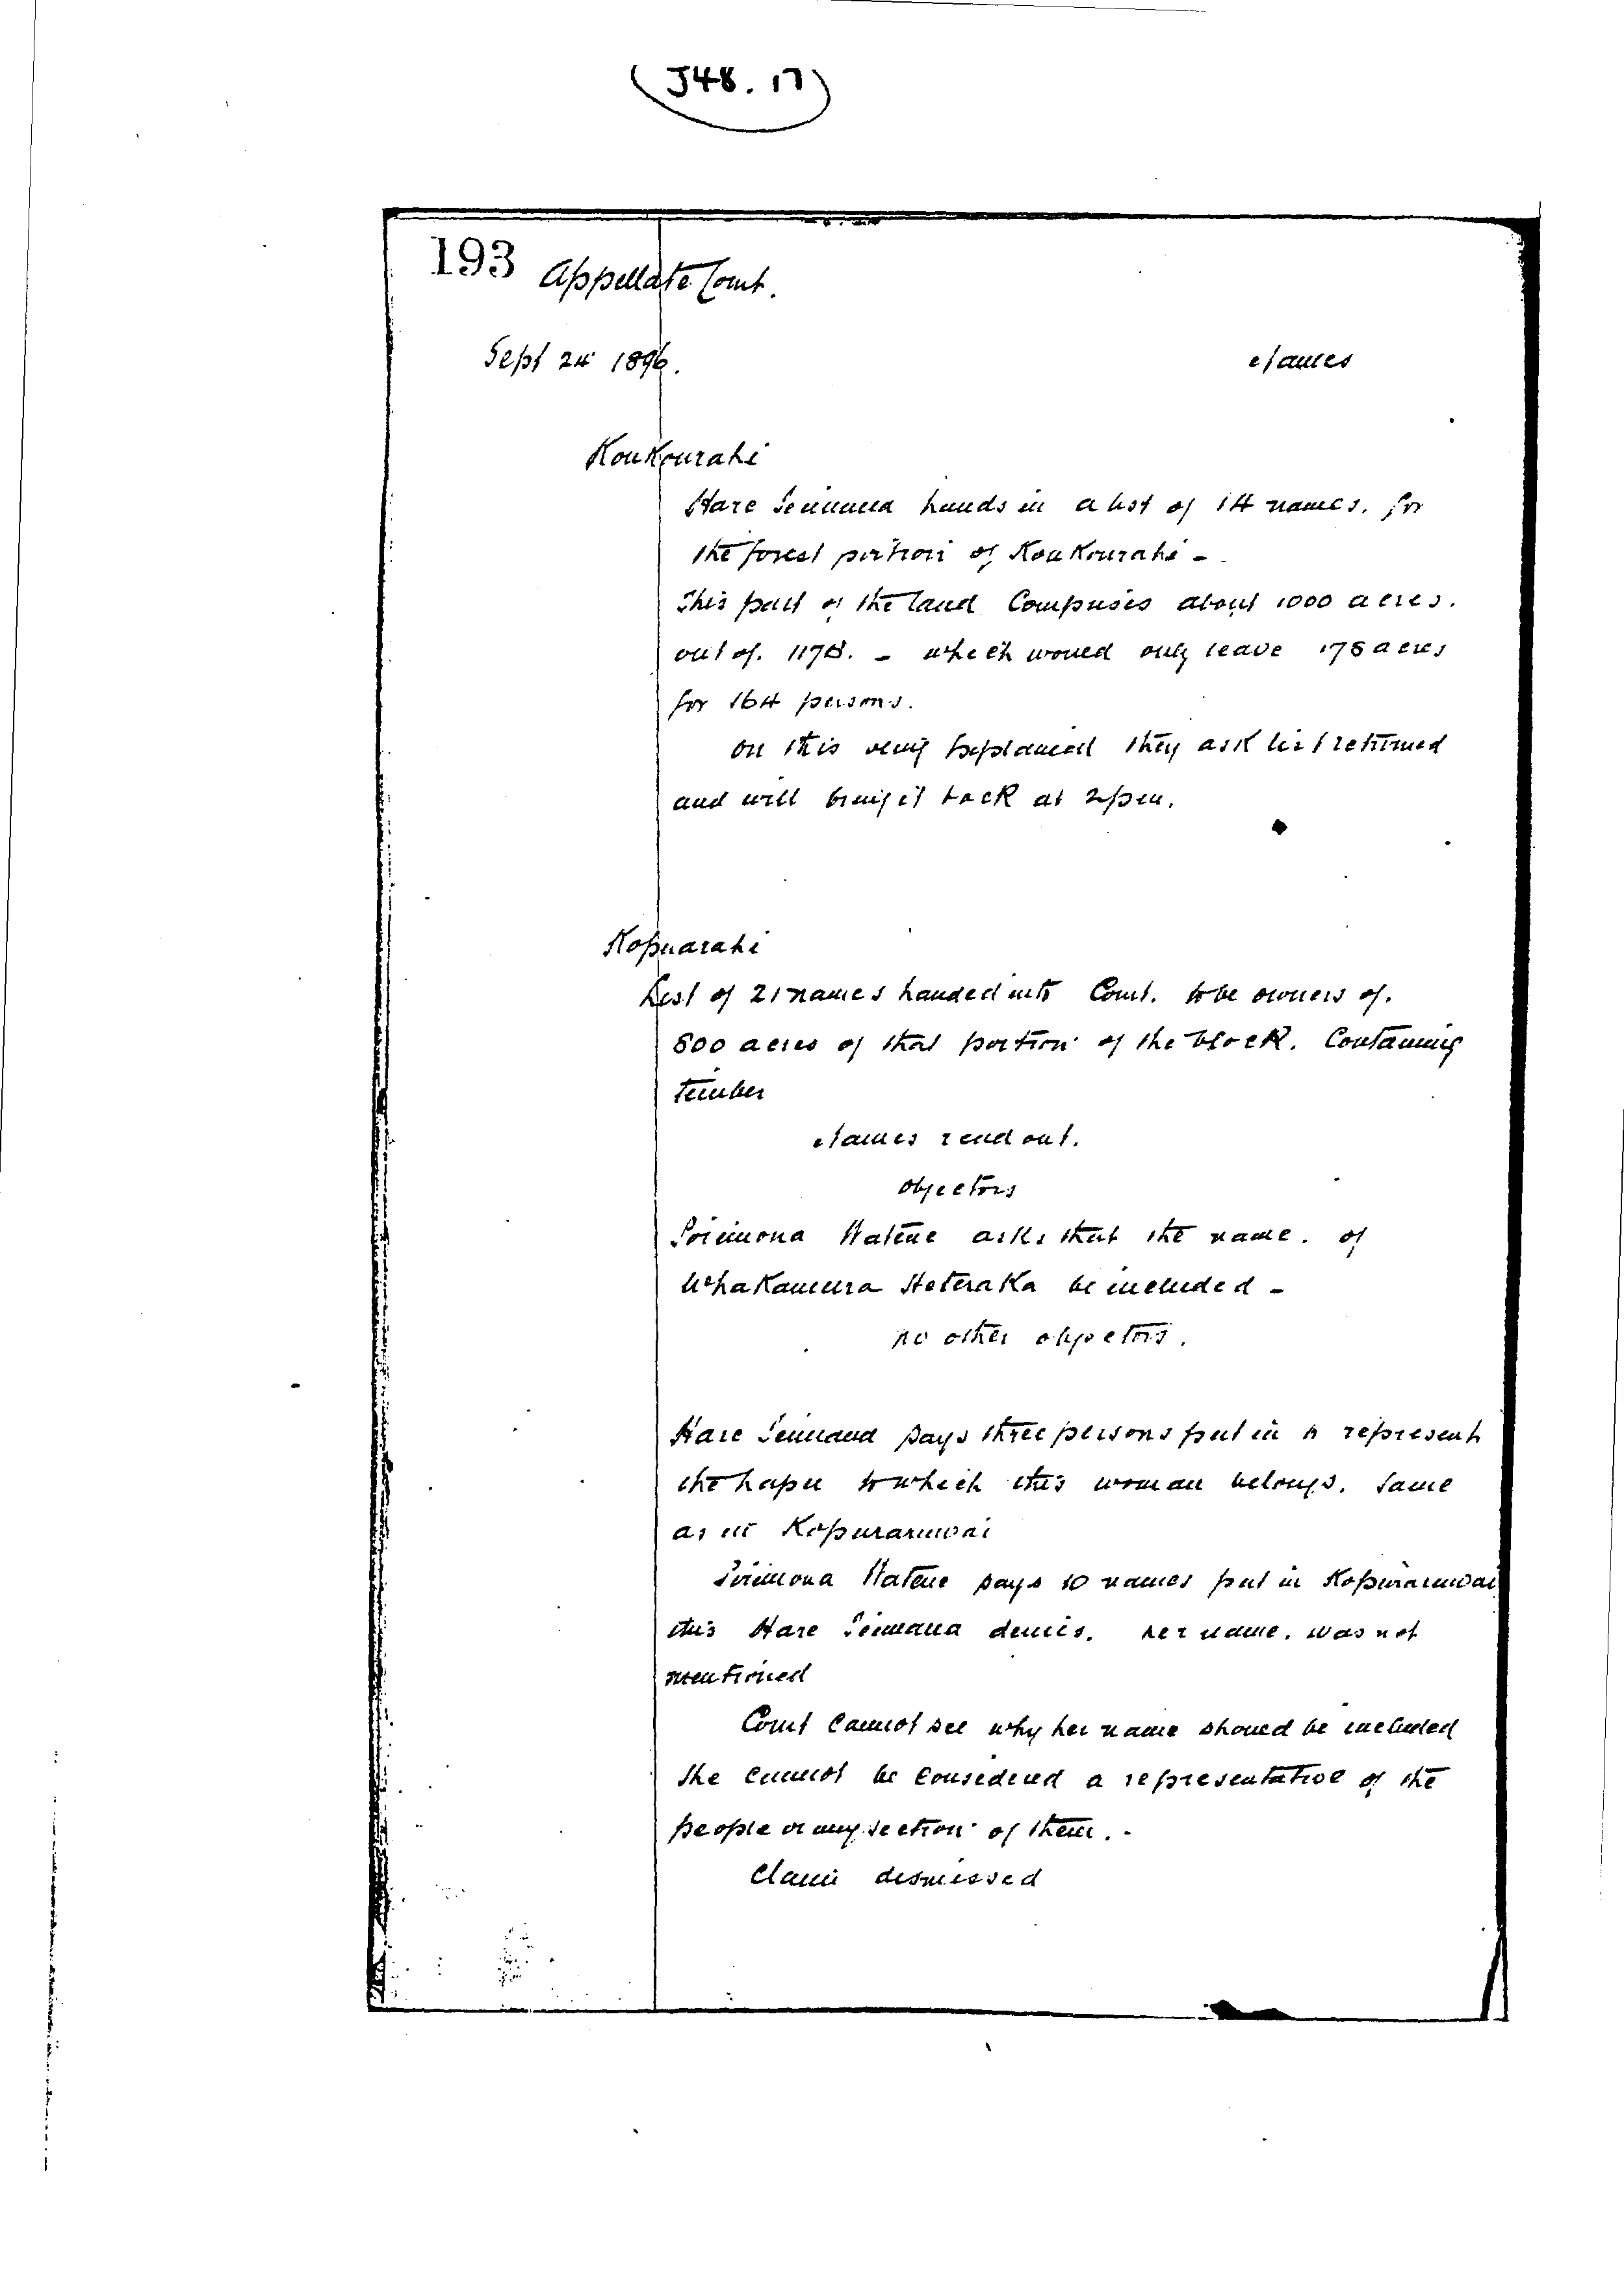 (J48.17)
193 Appellate Court.
Sept 24 1896.
Names
Koukourahi
Hare hands in a list of 14 names. for
the forest portion of Koukourahi -
This part of the land Comprises about 1000 acres.
out of. 1178. - which would only leave 178 acres
for 164 persons.
on this being explained they ask list returned
and will bring it back at 2 pm.
Kopuarahi
List of 21 names handed into Court. to be owners of.
800 acres of that portion of the block. Containing
timber
Names read out.
Objectors
Pirimona Watene asks that the name. of
Heteraka be included -
no other objectors.
Hare says three persons put in to represent
the hapu to which this woman belongs. Same
as in Kopuraruwai
Pirimona Watene says 10 names put in Kopuraruwai
this Hare denies. her name. was not
mentioned
Court cannot see why her name should be included
She cannot be Considered a representative of the
people or any section of them. -
Claim dismissed